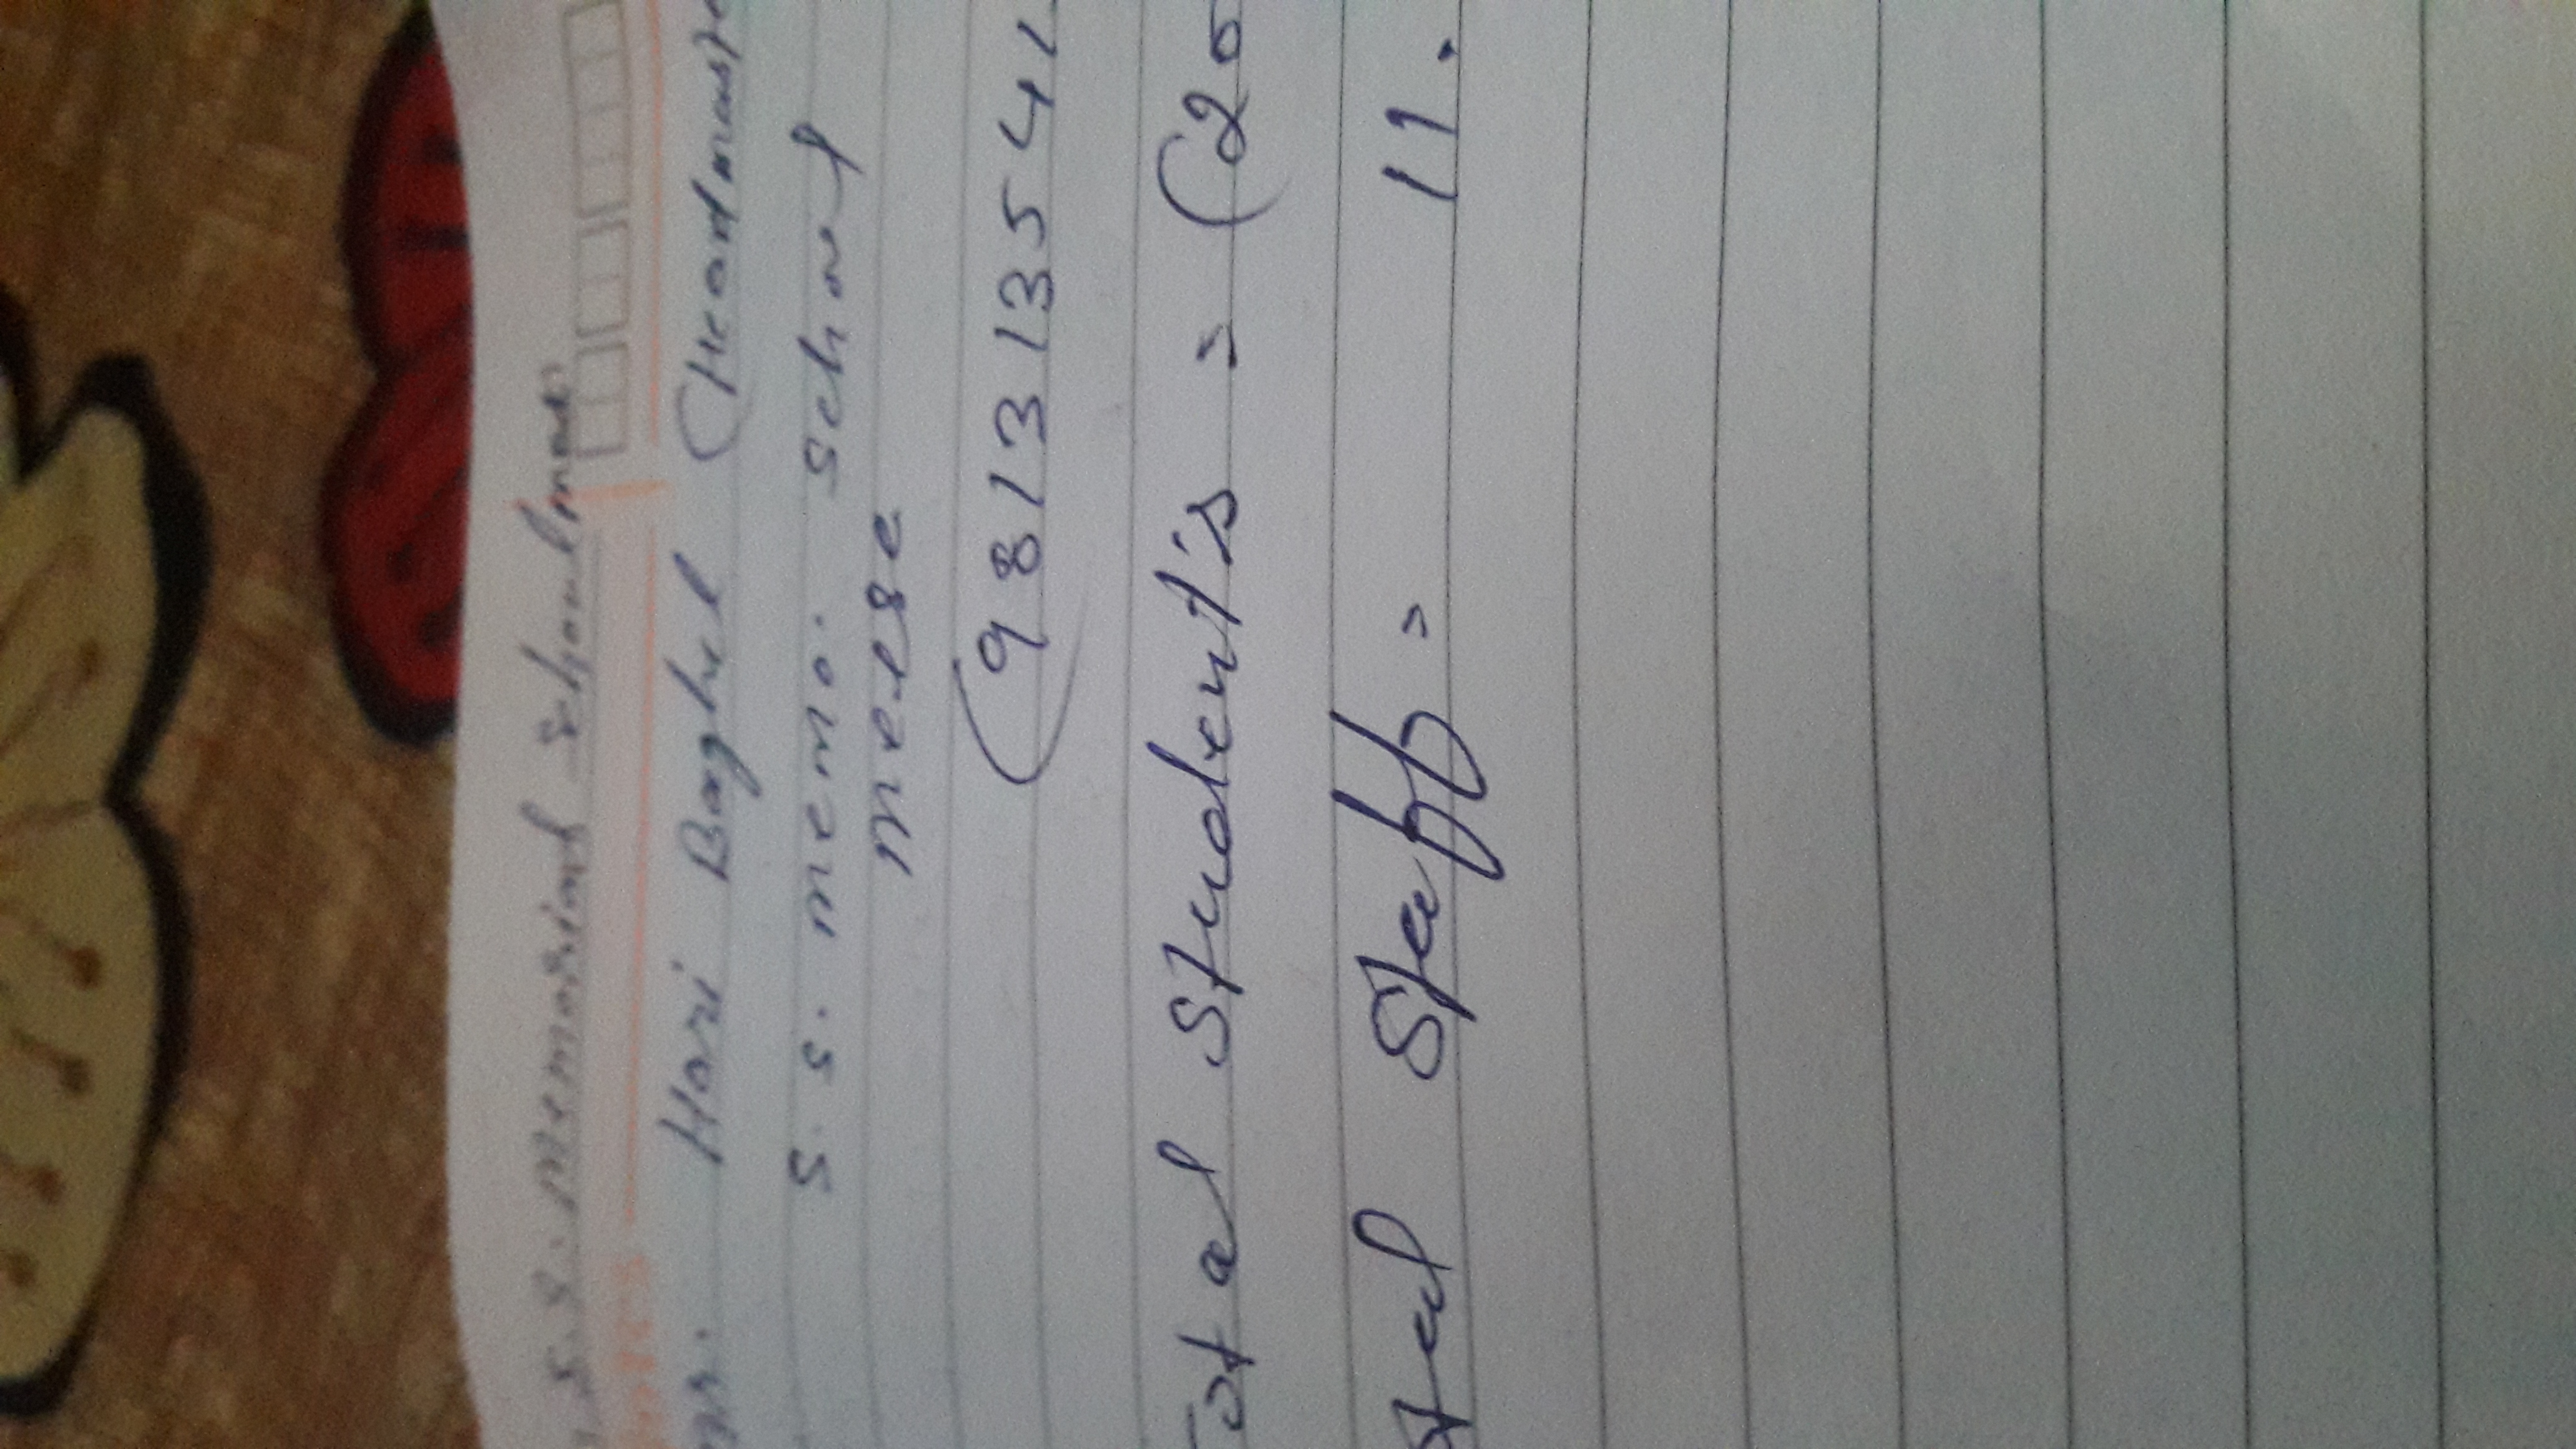 S.S. Memorial School
Hari Baghel (Headmaste
S. S. memo. School
(981313541
Total Student's = (20
Staff = 11.